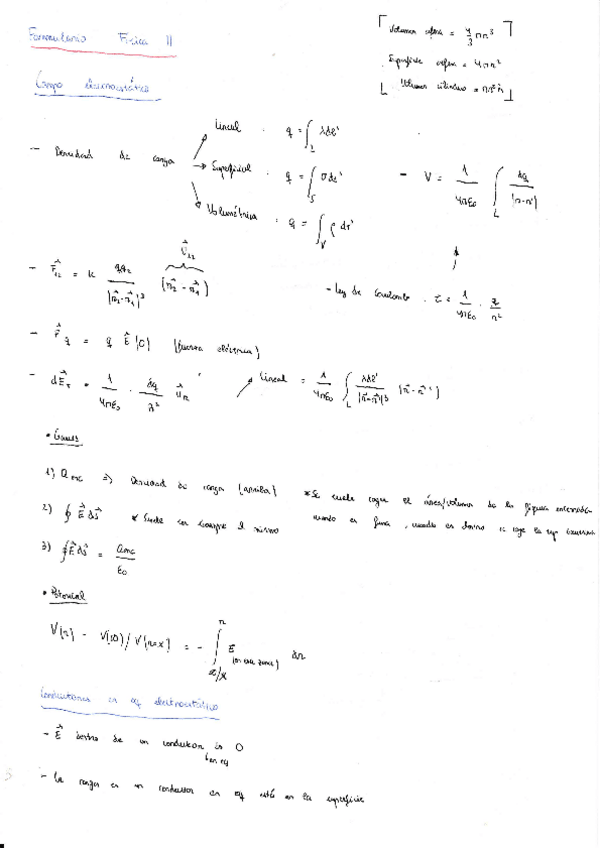 Formulario Física II
Volumen esfera = 4/3 πr³
Superficie esfera = 4πr²
Volumen cilindro = πr²h
Campo electrostático
Lineal . q = ∫_L λdl'
- Densidad de carga → Superficial . q = ∫_S σds'
Volumétrica . q = ∫_V ρ dv'
- V = 1/4πε₀ ∫_L dq/|r-r'|
- F⃗₁₂ = k q₁q₂/|r⃗₂-r⃗₁|³ (r⃗₂ - r⃗₁)
- Ley de Coulomb . E = 1/4πε₀ . q/r²
- F⃗q = q E⃗(0) (fuerza eléctrica)
- dE⃗r = 1/4πε₀ . dq/r² u⃗r
Lineal = 1/4πε₀ ∫_L λdl'/|r⃗-r⃗'|³ (r⃗ - r⃗')
• Gauss
1) Q enc => Densidad de carga (arriba)
* Se suele coger el área/volumen de la figura
cuando es fuera, cuando es dentro se coge la
2) ∮ E⃗ ds⃗ * Suele ser siempre el mismo
3) ∮ E⃗ ds⃗ = Qenc/ε₀
• Potencial
V(r) - V(∞) / V(r=x) = - ∫_{∞/x}^{r} E (en esa zona) dr
Conductores en eq electrostático
- E⃗ dentro de un conductor es 0
en eq
- La carga en un conductor en eq está en la superficie